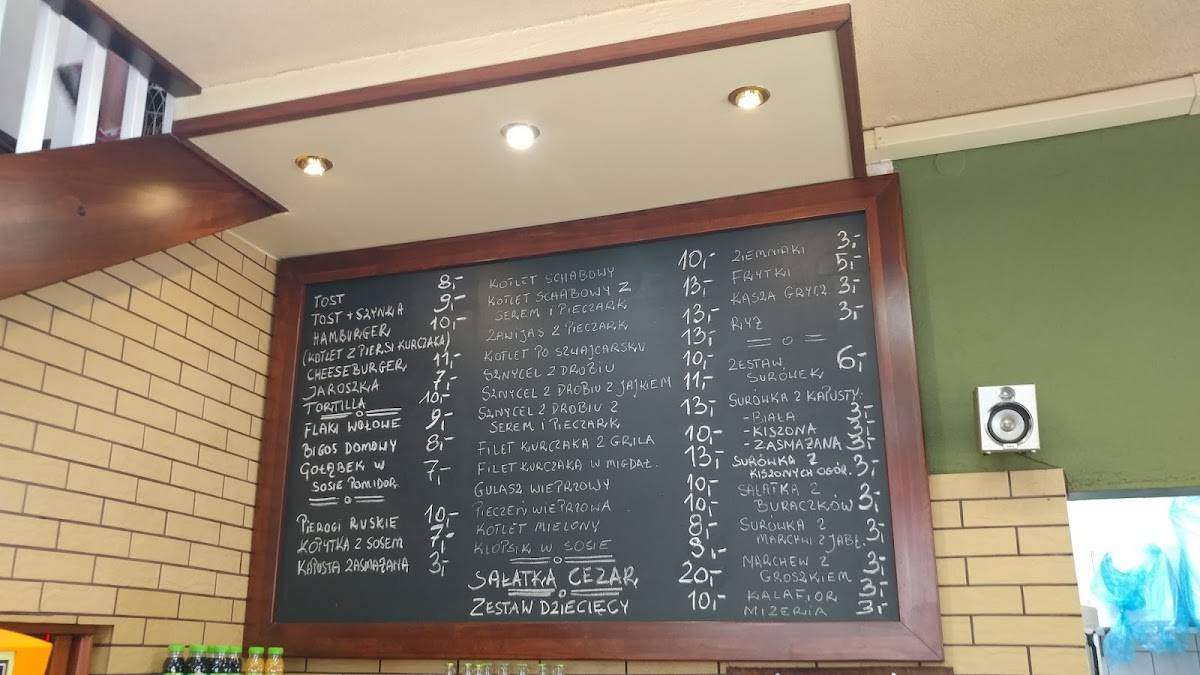 TOST 8,-
TOST + SZYNKA 9,-
HAMBURGER 10,-
(KOTLET Z PIERSI KURCZAKA)
CHEESEBURGER 11,-
JAROSZKA 7,-
TORTILLA 10,-
FLAKI WOŁOWE 9,-
BIGOS DOMOWY 8,-
GOŁĄBEK W 7,-
SOSIE POMIDOR.
PIEROGI RUSKIE 10,-
KOPYTKA Z SOSEM 7,-
KAPUSTA ZASMAŻANA 3,-
KOTLET SCHABOWY 10,-
KOTLET SCHABOWY Z 13,-
SEREM I PIECZARK
ZAWIJAS Z PIECZARK 13,-
KOTLET PO SZWAJCARSKU 13,-
SZNYCEL Z DROBIU 10,-
SZNYCEL Z DROBIU Z JAJKIEM 11,-
SZNYCEL Z DROBIU Z 13,-
SEREM I PIECZARK
FILET KURCZAKA Z GRILA 10,-
FILET KURCZAKA W MIGDAŁ. 13,-
GULASZ WIEPRZOWY 10,-
PIECZEŃ WIEPRZOWA 10,-
KOTLET MIELONY 8,-
KLOPSIK W SOSIE 9,-
SAŁATKA CEZAR 20,-
ZESTAW DZIECIĘCY 10,-
ZIEMNIAKI 3,-
FRYTKI 5,-
KASZA GRYCZ. 3,-
RYŻ 3,-
ZESTAW 6,-
SURÓWEK
SURÓWKA Z KAPUSTY:
- BIAŁA 3,-
- KISZONA 3,-
- ZASMAŻANA 3,-
SURÓWKA Z 3,-
KISZONYCH OGÓR.
SAŁATKA Z 3,-
BURACZKÓW
SURÓWKA Z 3,-
MARCHWI Z JABŁ.
MARCHEW Z 3,-
GROSZKIEM
KALAFIOR 3,-
MIZERIA 3,-